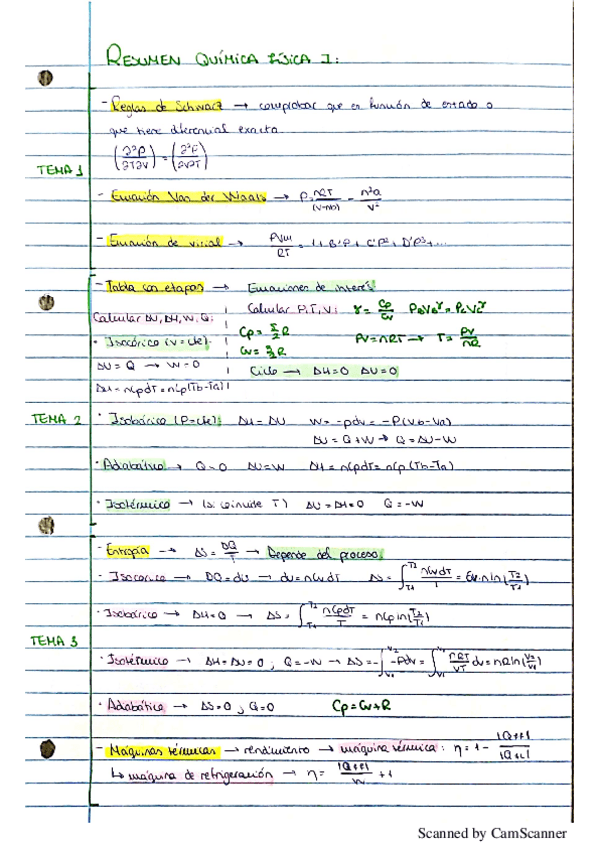 RESUMEN QUÍMICA FÍSICA I:
- Reglas de Schwarz → comprobar que es función de estado o
que tiene diferencial exacta
(∂²P/∂T∂V) = (∂²P/∂V∂T)
TEMA 1
- Ecuación Van der Waals → P = nRT/(V-Nb) - n²a/V²
- Ecuación de virial → PVm/RT = 1 + B'P + C'P² + D'P³ + ...
- Tabla con etapas → Ecuaciones de interés
Calcular ΔU, ΔH, W, Q:
Calcular P, T, V: γ = Cp/Cv P₀V₀^γ = P₂V₂^γ
Cp = 5/2 R
· Isocórico (V=cte).
Cv = 3/2 R
PV = nRT → T = PV/nR
ΔU = Q → W=0
Ciclo → ΔH=0 ΔU=0
ΔH = nCpdT = nCp(Tb-Ta)
TEMA 2
· Isobárico (P=cte): ΔH = ΔU W = -pdv = -P(Vb-Va)
ΔU = Q+W → Q = ΔU-W
· Adiabático → Q=0 ΔU=W ΔH = nCpdT = nCp(Tb-Ta)
· Isotérmico → (si coincide T) ΔU = ΔH = 0 Q = -W
- Entropía → ΔS = DQ/T → Depende del proceso:
- Isocórico → DQ = dU → dU = nCvdT ΔS = ∫T1 T2 nCvdT/T = Cv·n ln(T2/T1)
· Isobárico → ΔH=0 → ΔS = ∫T1 T2 nCpdT/T = nCp ln(T2/T1)
TEMA 3
· Isotérmico → ΔH = ΔU = 0 ; Q = -W → ΔS = -∫V1 V2 -Pdv = ∫V1 V2 nRT/VT dv = nR ln(V2/V1)
· Adiabática → ΔS=0 ; Q=0 Cp = Cv+R
- Máquinas térmicas → rendimiento → máquina térmica: η = 1 -
↳ máquina de refrigeración → η = + 1
Scanned by CamScanner